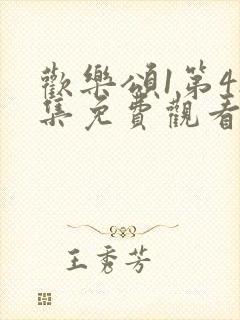 歡樂頌1,第4
集免費觀看
王秀芳